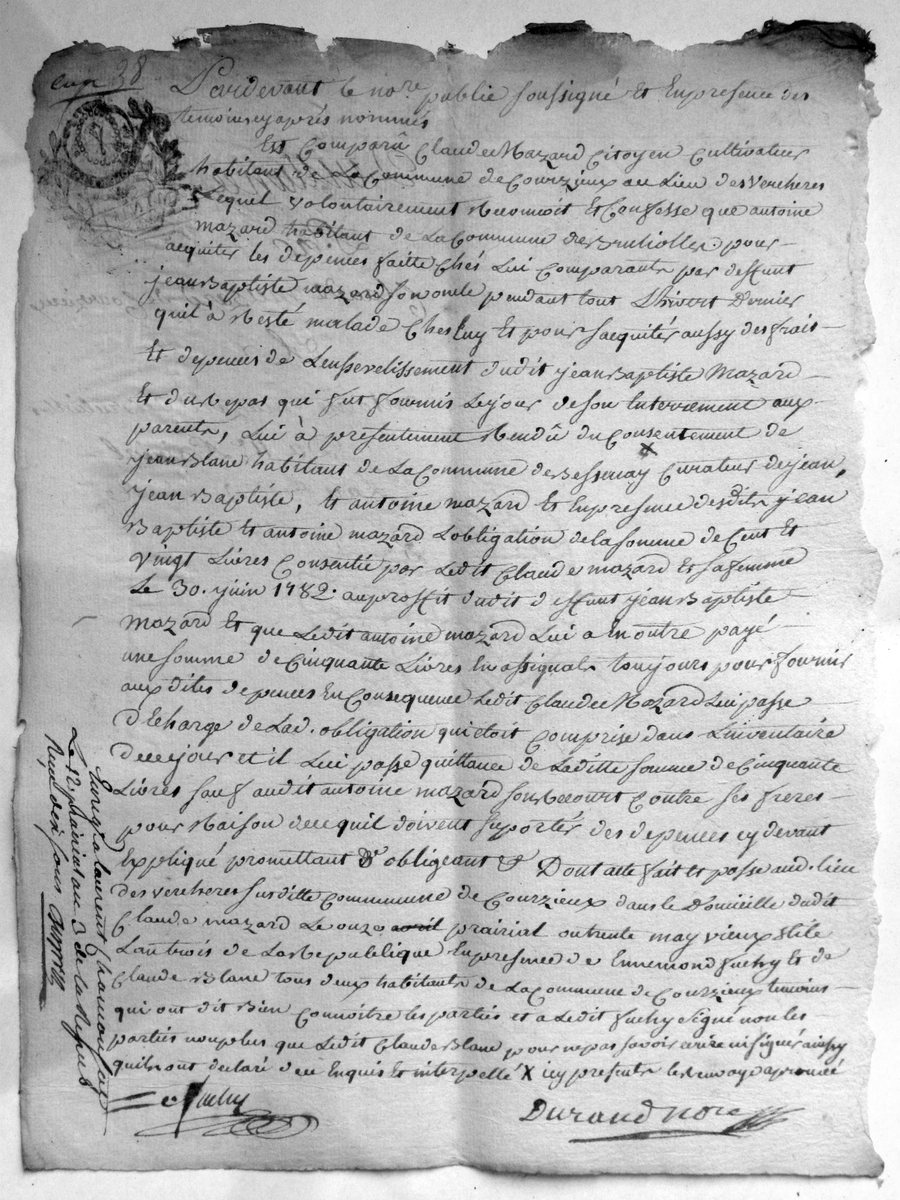 cup 38
Pardevant le no.re public soussigné et Enpresence des
temoins cy après nommés
Est Comparû Claude Mazard Citoyen Cultivateur
habitant de La Commune de Courzieux au Lieu des Vercheres
Lequel volontairement Reconnoit et Confesse que antoine
mazard habitant de La Commune de Brulliolles pour
acquiter les depences faitte Chés Lui Comparant par deffunt
jean Baptiste mazard son oncle pendant tout L'hivert Dernier
qu'il à Resté malade Ches luy Et pour S'acquités aussy des frais
Et depences de L'ensevelissement dudit jean Baptiste Mazard
Et du Repas qui fut fournis Le jour de son Interrement aux
parents, Lui à presentement Rendû du Consentement de
jean Blanc habitant de La Commune de Bessenay Curateur de jean,
jean Baptiste, Et antoine mazard Et Enpresence desdits jean
Baptiste Et antoine mazard L'obligation de la somme de Cent Et
vingt Livres Consentie par Ledit Claude mazard Et sa femme
Le 30. juin 1782. au proffit dudit deffunt jean Baptiste
mazard Et que Ledit antoine mazard Lui a En outre payé
une somme de Cinquante Livres En assignats toujours pour fournir
aux dites depences En Consequence Ledit Claude Mazard Lui passe
décharge de Lad. obligation qui étoit Comprise dans L'inventaire
de ce jour et il Lui passe quittance de Laditte somme de Cinquante
Livres sauf audit antoine mazard son Recourt Contre ses freres
pour Raison de ce quil doivent suportér des depences cy devant
Expliqué promettant & obligeant & Dont acte fait et passé aud. lieu
des vercheres susditte Commmune de Courzieux dans le Domicille dudit
Claude mazard Le onze avril prairial ou trente may vieux stile
L'an trois de La Republique Enpresence de Ennemond fuchy Et de
Claude Blanc tous deux habitants de La Commune de Courzieux temoins
qui ont dit Bien Connoitre les parties et a Ledit fuchy signé non les
parties non plus que Ledit Claude Blanc pour ne pas savoir écrire ni signér ainsy
quils ont declaré de ce Enquis Et interpellé X icy presents le Renvoy aprouvé
fuchy
Durand no.re
Enreg.é a laurent Chamousset
Le 12 prairial an 3 de la Repub
Reçu dix sous